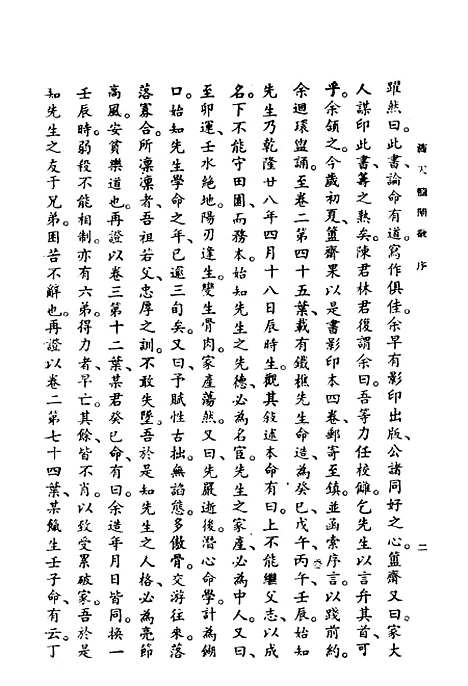 滴天髓闡微 序
二
躍然曰。此書論命有道。寫作俱佳。余早有影印出版、公諸同好之心。簠齋又曰。家大
人謀印此書、籌之熟矣。陳君林君復謂余曰。吾等力任校讎。乞先生以言弁其首、可
乎。余頷之。今歲初夏、簠齋果以是書影印本四卷、郵寄至鎮、並函索序言、以踐前約。
余迴環盥誦。至卷二第四十五葉、載有鐵樵先生命造、為癸巳、戊午、丙午、壬辰。始知
先生乃乾隆廿八年四月十八日辰時生。觀其敍述本命有曰。上不能繼父志、以成
名。下不能守田園、而務本。始知先生之先德、必為名宦。先生之家產、必為中人。又曰、
至卯運、壬水絕地。陽刃逢生。變生骨肉。家產蕩然。又曰、先嚴逝後、潛心命學、計為餬
口。始知先生學命之年、已逾三旬矣。又曰、予賦性古拙。無諂態、多傲骨。交游往來、落
落寡合。所凜凜者、吾祖若父、忠厚之訓、不敢失墜。吾於是知先生之人格、必為亮節
高風。安貧樂道也。再證以卷三第十二葉、某君癸巳命、有曰。余造年月日皆同。換一
壬辰時。弱殺不能相制。亦有六弟。得力者、早亡。其餘、皆不肖。以致受累破家。吾於是
知先生之友于兄弟。困苦不辭也。再證以卷二第七十四葉、某織生壬子命、有云。丁